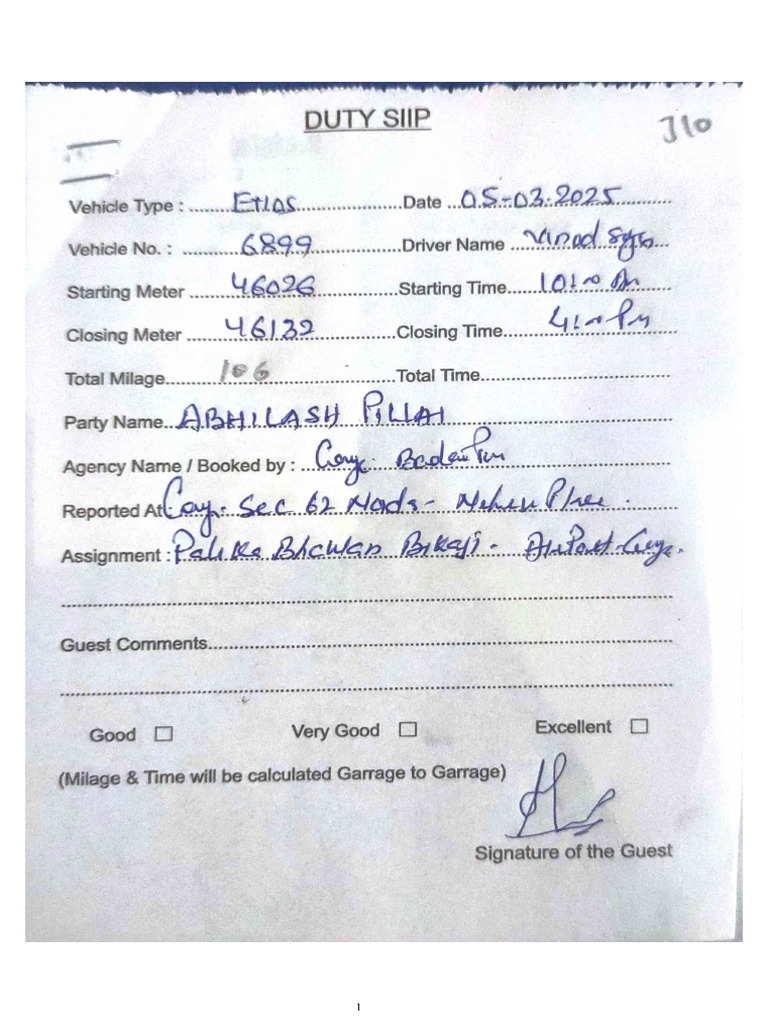 DUTY SIIP
310
Vehicle Type : Etios Date 05-03-2025
Vehicle No. : 6899 Driver Name
Starting Meter 46026 Starting Time
Closing Meter 46132 Closing Time
Total Milage 106 Total Time
Party Name ABHILASH PILLAI
Agency Name / Booked by :
Reported At Sec 62
Assignment : Bhawan Bikaji -
Guest Comments
Good Very Good Excellent
(Milage & Time will be calculated Garrage to Garrage)
Signature of the Guest
1